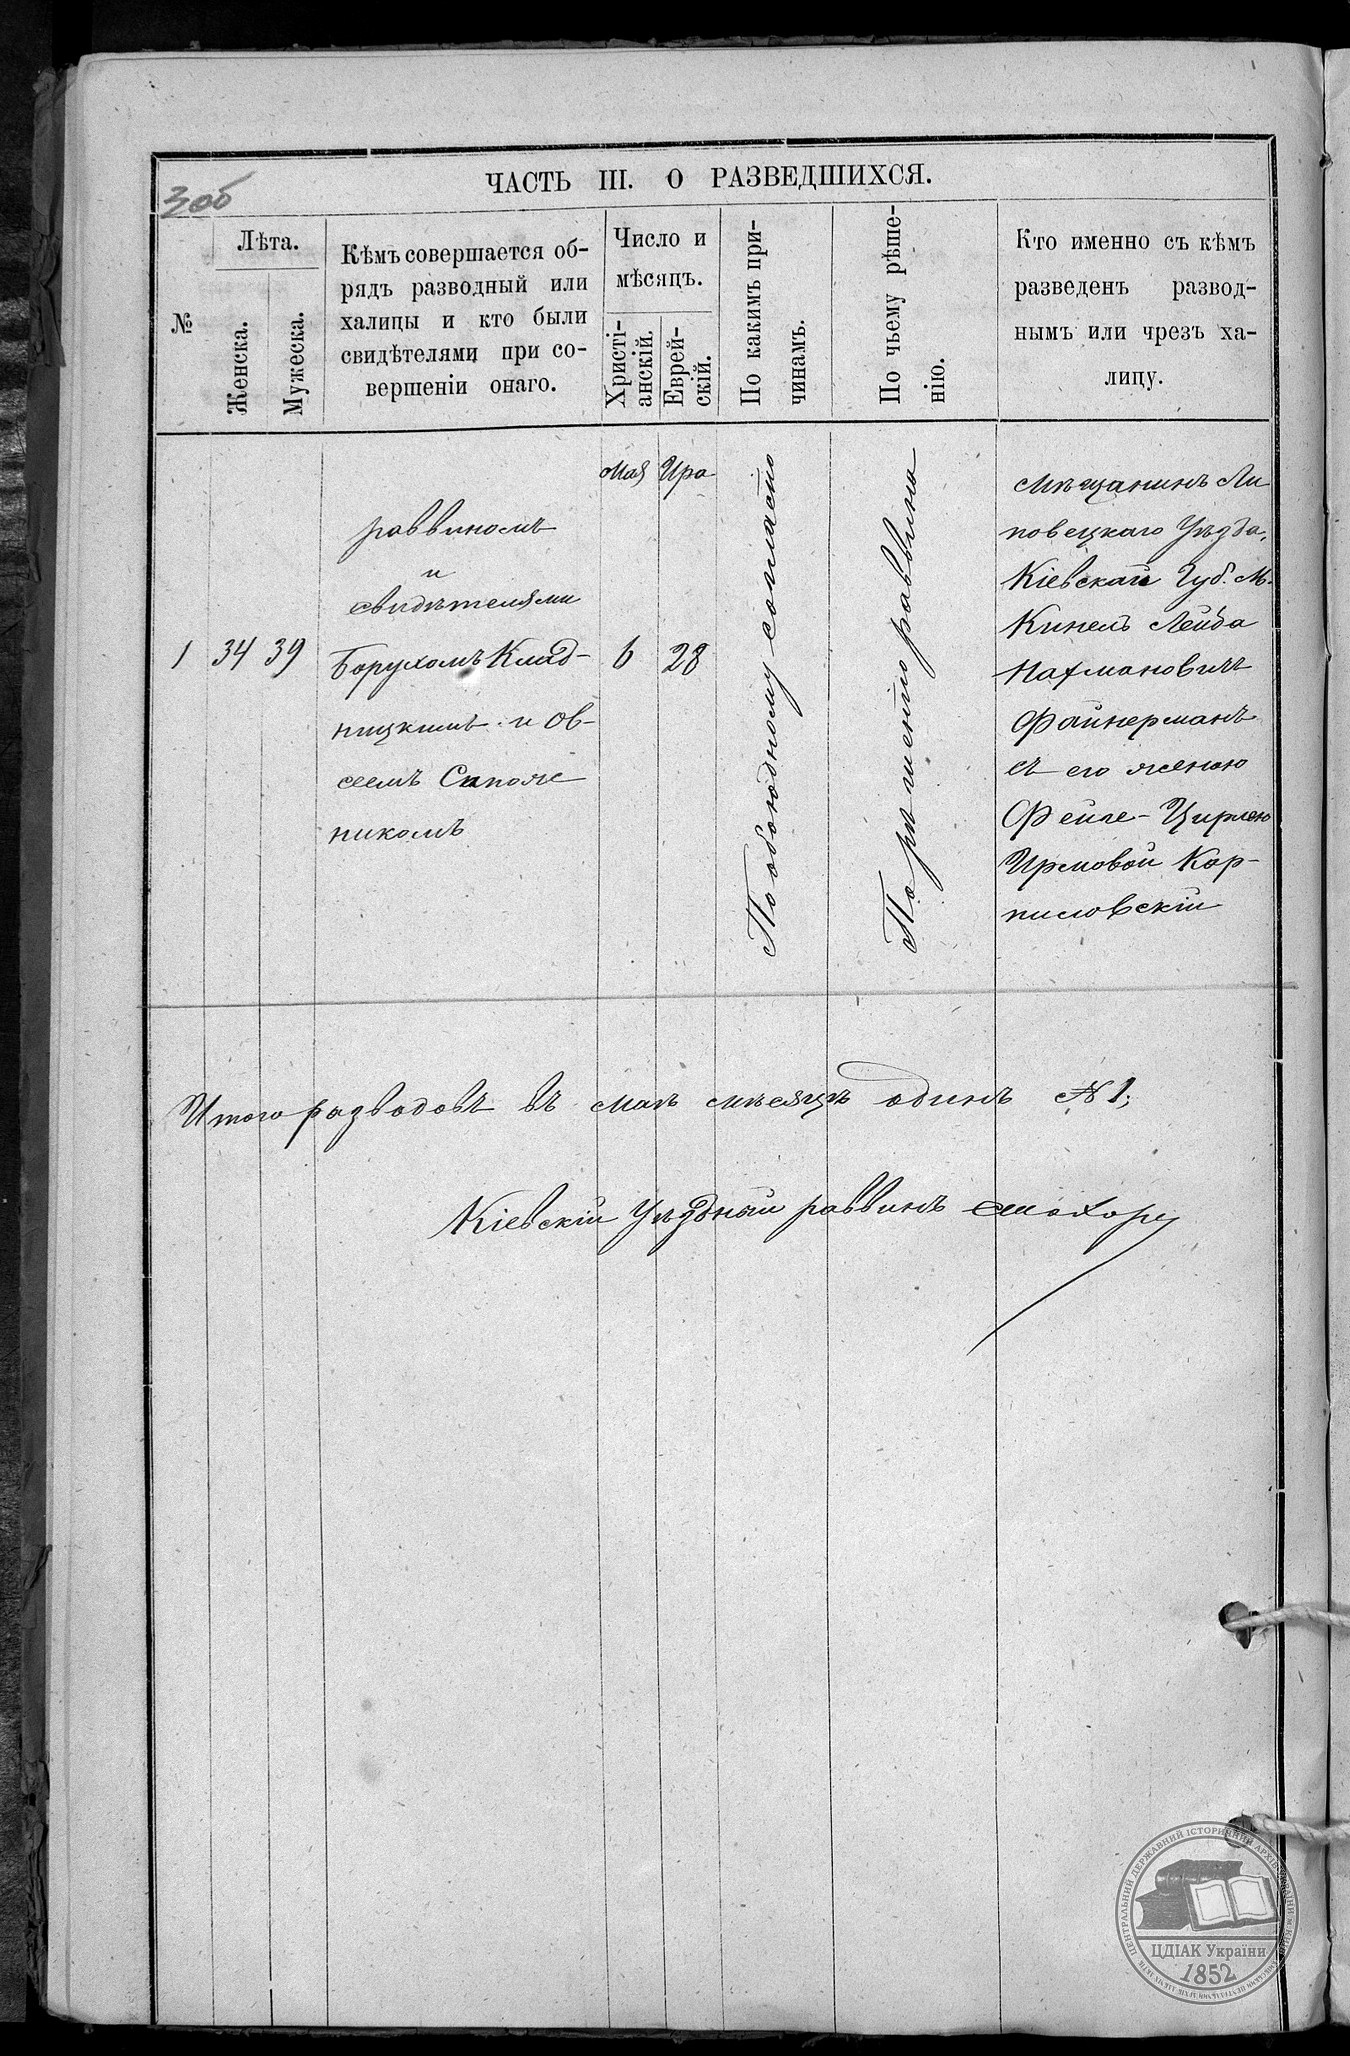 3об
ЧАСТЬ III. О РАЗВЕДШИХСЯ.
№
Лѣта.
Женска.
Мужеска.
Кѣмъ совершается об-
рядъ разводный или
халицы и кто были
свидѣтелями при со-
вершеніи онаго.
Число и
мѣсяцъ.
Христі-
анскій.
Еврей-
скій.
По какимъ при-
чинамъ.
По чьему рѣше-
нію.
Кто именно съ кѣмъ
разведенъ развод-
нымъ или чрезъ ха-
лицу.
1
34
39
раввиномъ
и
свидѣтелями
Борухомъ Клад-
ницкимъ и Ов-
сеемъ Сапож
никомъ
Мая
6
Ира
28
По обоюдному согласію
По рѣшенію раввина
Мѣщанинъ Ли
повецкаго Уѣзда,
Кіевскай Губ. М.
Кинелъ Лейба
Нахмановичъ
Файнерманъ
съ его женою
Фейге-Цирлею
Ирмовой Кор-
писловскій
Итого разводовъ въ маѣ мѣсяцѣ одинъ № 1;
Кіевскій Уѣздный раввинъ
ЦЕНТРАЛЬНИЙ ДЕРЖАВНИЙ ІСТОРИЧНИЙ АРХІВ УКРАЇНИ
ЦДІАК України
1852